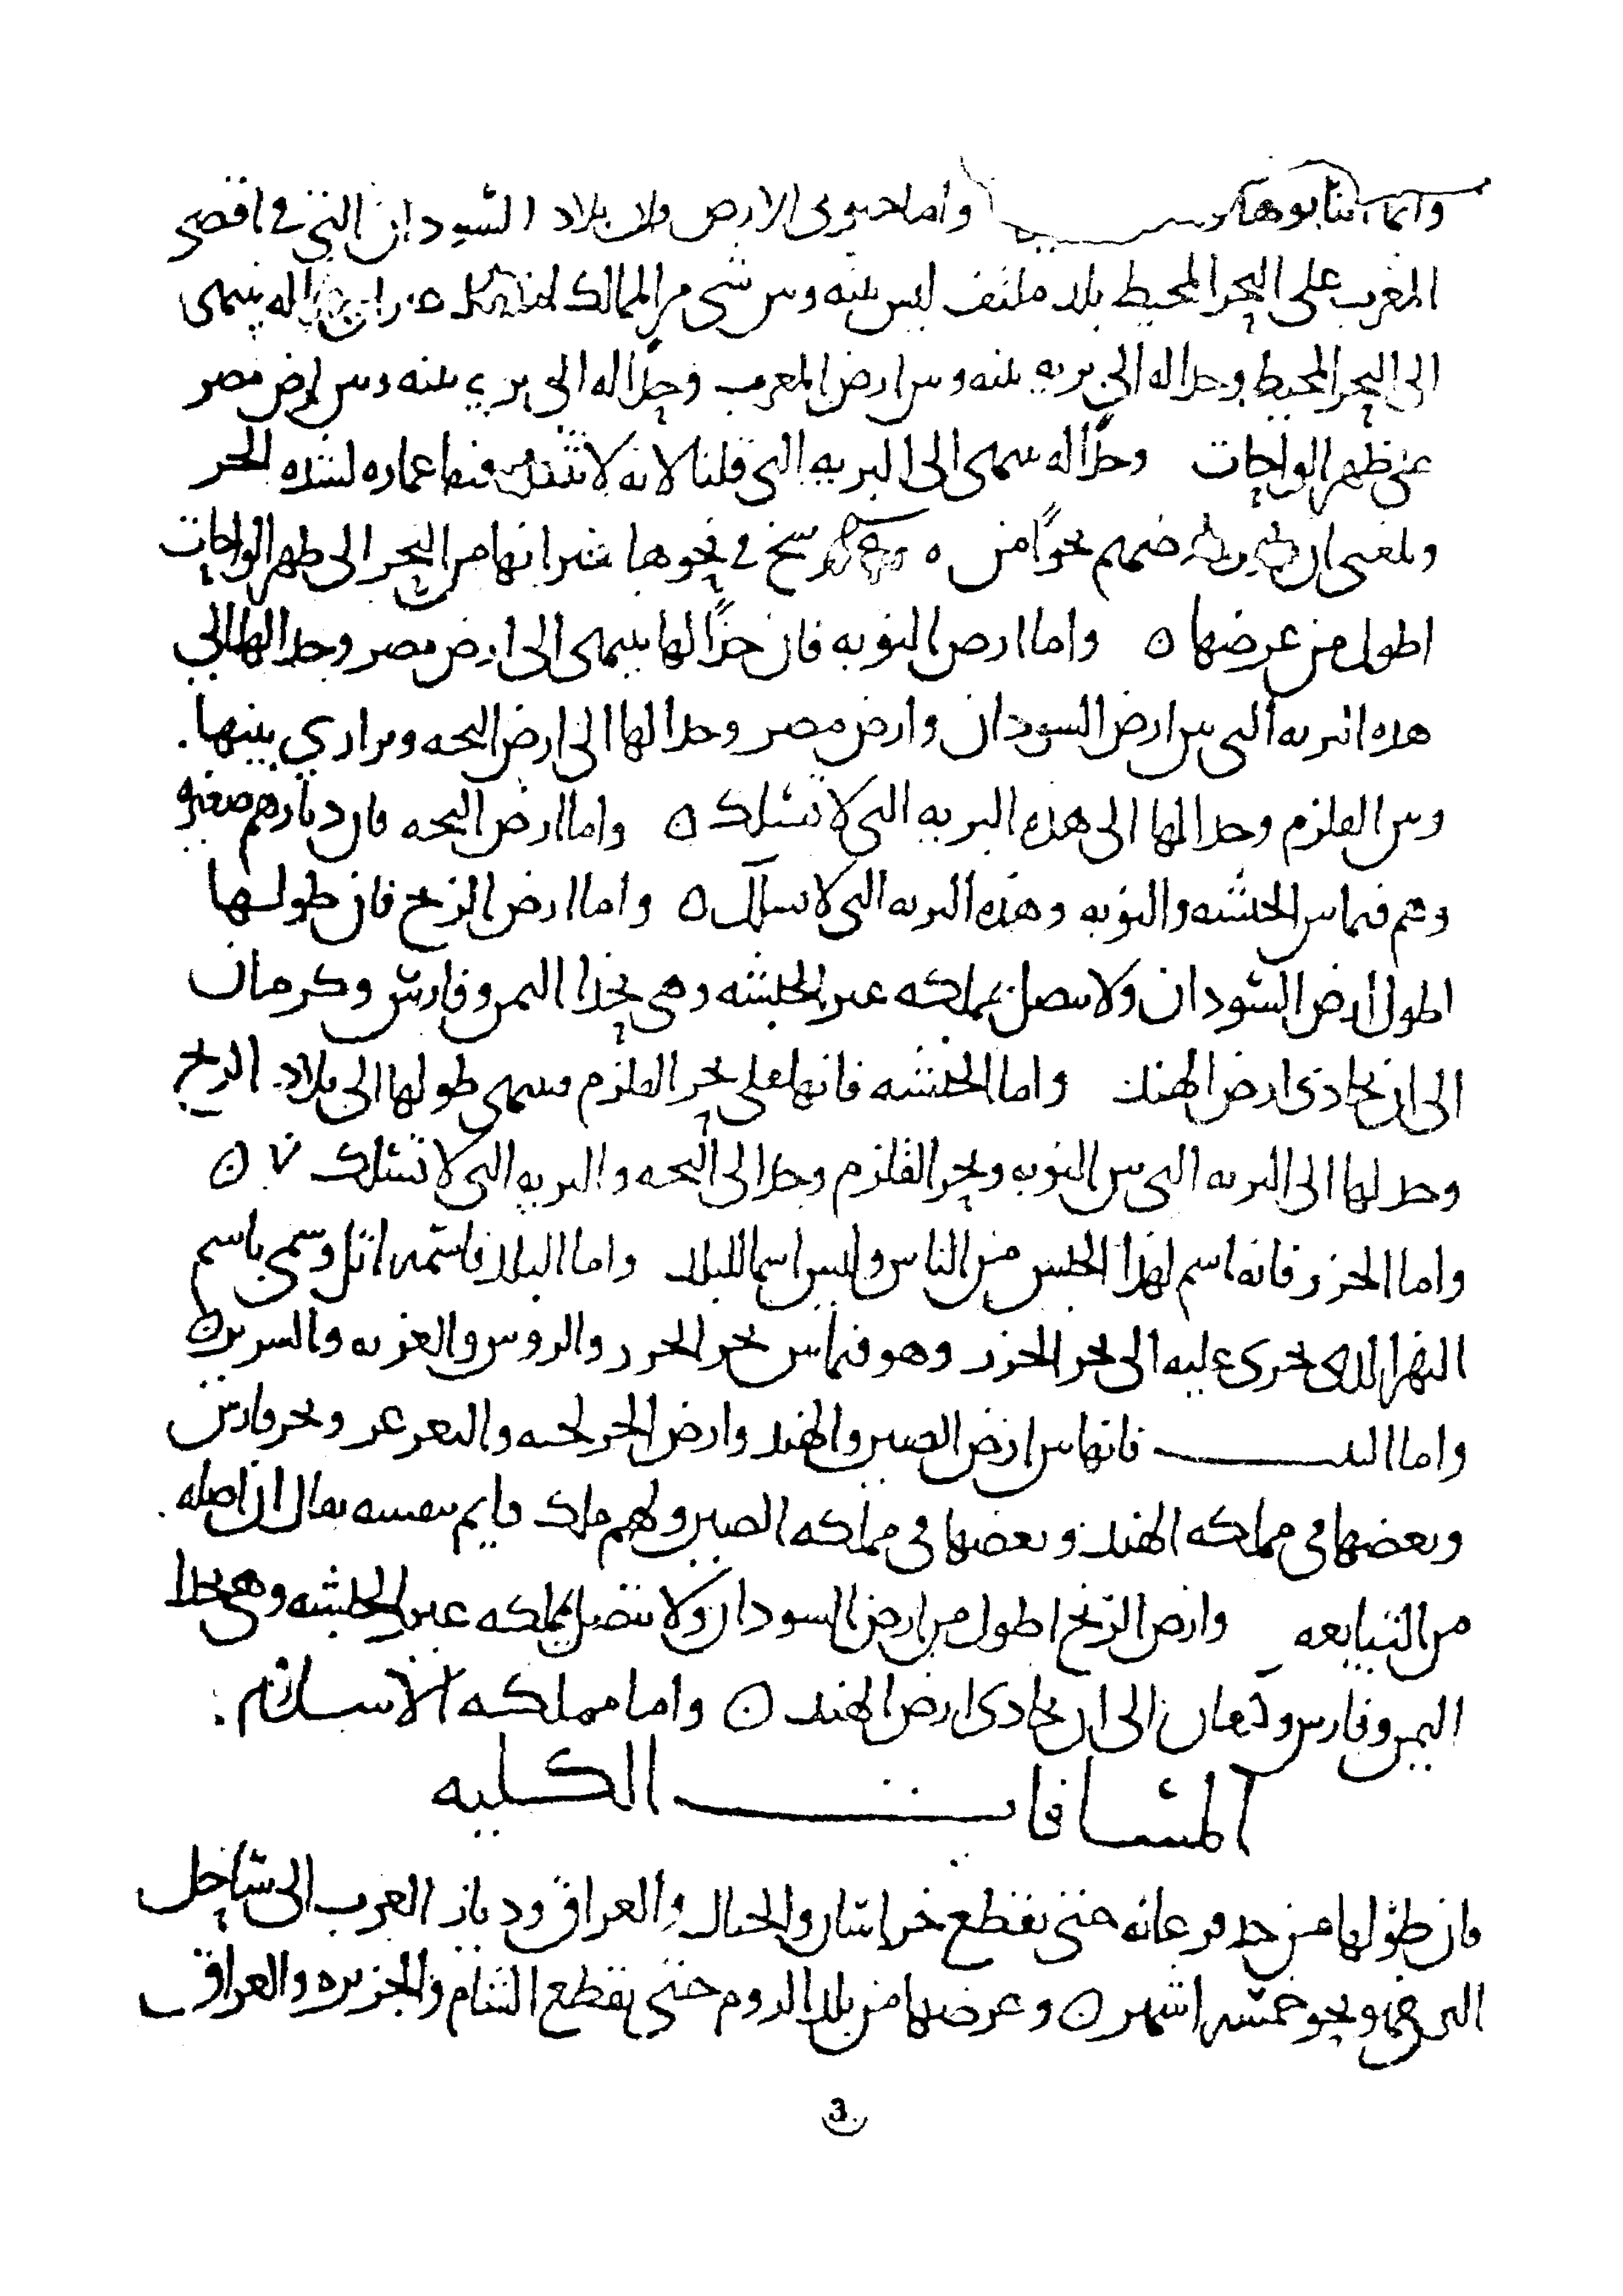 واما جنوبى الارض فان بلاد السودان التى فى اقصى
المغرب على البحر المحيط بلد ملتف ليس بينه وبين شى من الممالك له ينتهى
الى البحر المحيط وحدا له الى بريه بينه وبين ارض المغرب وحدا له الى بريه بينه وبين ارض مصر
على ظهر الواحات وحدا له ينتهى الى البريه التى قلنا لانه لا فيها عماره لشده الحر
وبلغنى ان ارضهم نحوا من فرسخ فى نحوها غير انها من البحر الى ظهر الواحات
اطول من عرضها ٥ واما ارض النوبه فان حدا لها ينتهى الى ارض مصر وحدا لها الى
هذه البريه التى بين ارض السودان وارض مصر وحدا لها الى ارض البجه وبرارى بينها
وبين القلزم وحدا لها الى هذه البريه التى لا تسلك ٥ واما ارض البجه فان ديارهم صغيره
وهم فيما بين الحبشه والنوبه وهذه البريه التى لا تسلك ٥ واما ارض الزنج فان طولها
اطول ارض السودان ولا تتصل بمملكه غير الحبشه وهى بحذا اليمن وفارس وكرمان
الى ان تحاذى ارض الهند واما الحبشه فانها على بحر القلزم فينتهى طولها الى بلاد الزنج
وحد لها الى البريه التى بين النوبه وبحر القلزم وحدا الى البجه والبريه التى لا تسلك ٧ ٥
واما الخزر فانه اسم لهذا الجنس من الناس وليس اسما للبلد واما البلد فاسمه اتل وسمى باسم
النهر الذى يجرى عليه الى بحر الخزر وهو فيما بين بحر الخزر والروس والغزيه والسرير ٥
واما التبت فانها بين ارض الصين والهند وارض الخرلخيه والتغرغر وبحر فارس
وبعضها فى مملكه الهند وبعضها فى مملكه الصين ولهم ملك قايم بنفسه يقال ان اصله
من التبابعه وارض الزنج اطول من ارض السودان ولا تتصل بمملكه غير الحبشه وهى بحذا
اليمن وفارس وكرمان الى ان تحاذى ارض الهند ٥ واما مملكه الاسلام
المسافات الكليه
فان طولها من حد فرغانه حتى يقطع خراسان والجبال والعراق وديار العرب الى ساحل
اليمن فهو نحو خمسه اشهر ٥ وعرضها من بلد الروم حتى يقطع الشام والجزيره والعراق
3